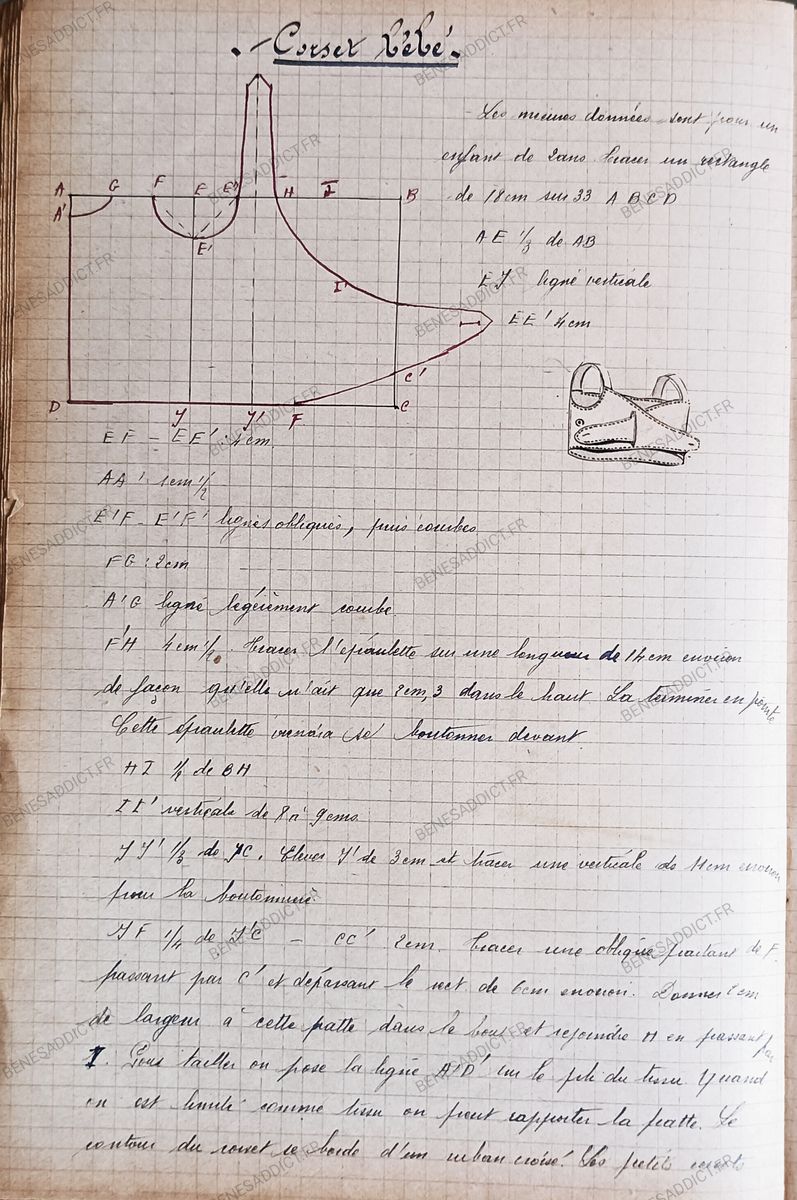 Corset bébé
Les mesures données sont pour un
enfant de 2 ans tracer un rectangle
de 18cm sur 33 A B C D
AE 1/3 de AB
EJ ligne verticale
EE' 4cm
A G F E E" H I B
A'
E'
I'
C'
D J J' F C
EF - EE' 4cm.
AA' 1cm 1/2
E'F - E'F' lignes obliques, puis courbes
FG : 2cm
A'G ligne légèrement courbe
F'H 4cm 1/2. Tracer l'épaulette sur une longueur de 14cm environ
de façon qu'elle n'ait que 2cm,3 dans le haut La terminer en pointe
Cette épaulette viendra se boutonner devant.
HI 1/2 de BH
II' verticale de 8 à 9cms
JJ' 1/3 de JC. Elever J' de 3cm et tracer une verticale de 11cm environ
pour la boutonnière.
JF 1/4 de J'C - CC' 2cm. Tracer une oblique partant de F
passant par C' et dépassant le rect de 6cm environ. Donner 2cm
de largeur à cette patte dans le bout et rejoindre H en passant par
I. Pour tailler on pose la ligne A'D' sur le pli du tissu Quand
on est limité comme tissu on peut rapporter la patte. Le
contour du corset se borde d'un ruban croisé. Les petits
BENESADDICT.FR